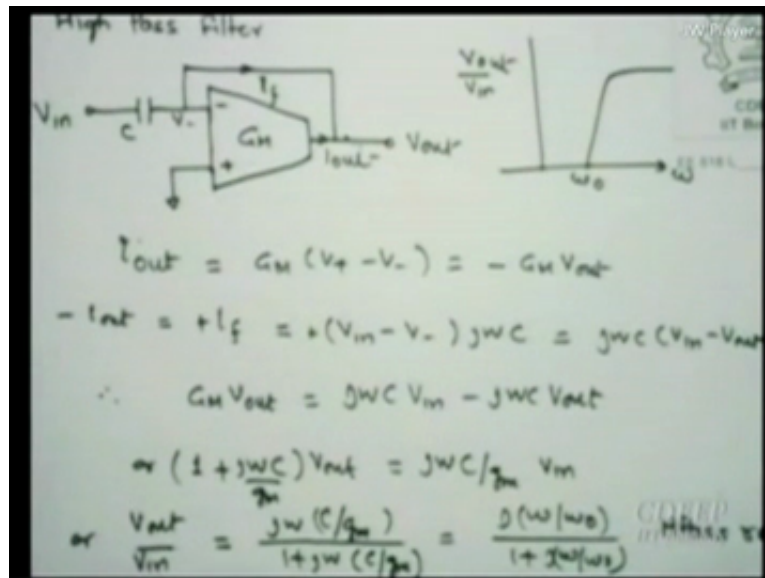 High Pass Filter
JW Player
V_out / V_in
V_in
C
V_-
I_f
-
G_M
+
I_out
V_out
ω_0
ω
I_out = G_M (V_+ - V_-) = - G_M V_out
- I_out = + I_f = + (V_in - V_-) jωC = jωC (V_in - V_out
∴ G_M V_out = jωC V_in - jωC V_out
or (1 + jωC/g_m) V_out = jωC/g_m V_in
or V_out/V_in = jω(C/g_m) / 1+jω(C/g_m) = j(ω/ω_0) / 1+j(ω/ω_0)